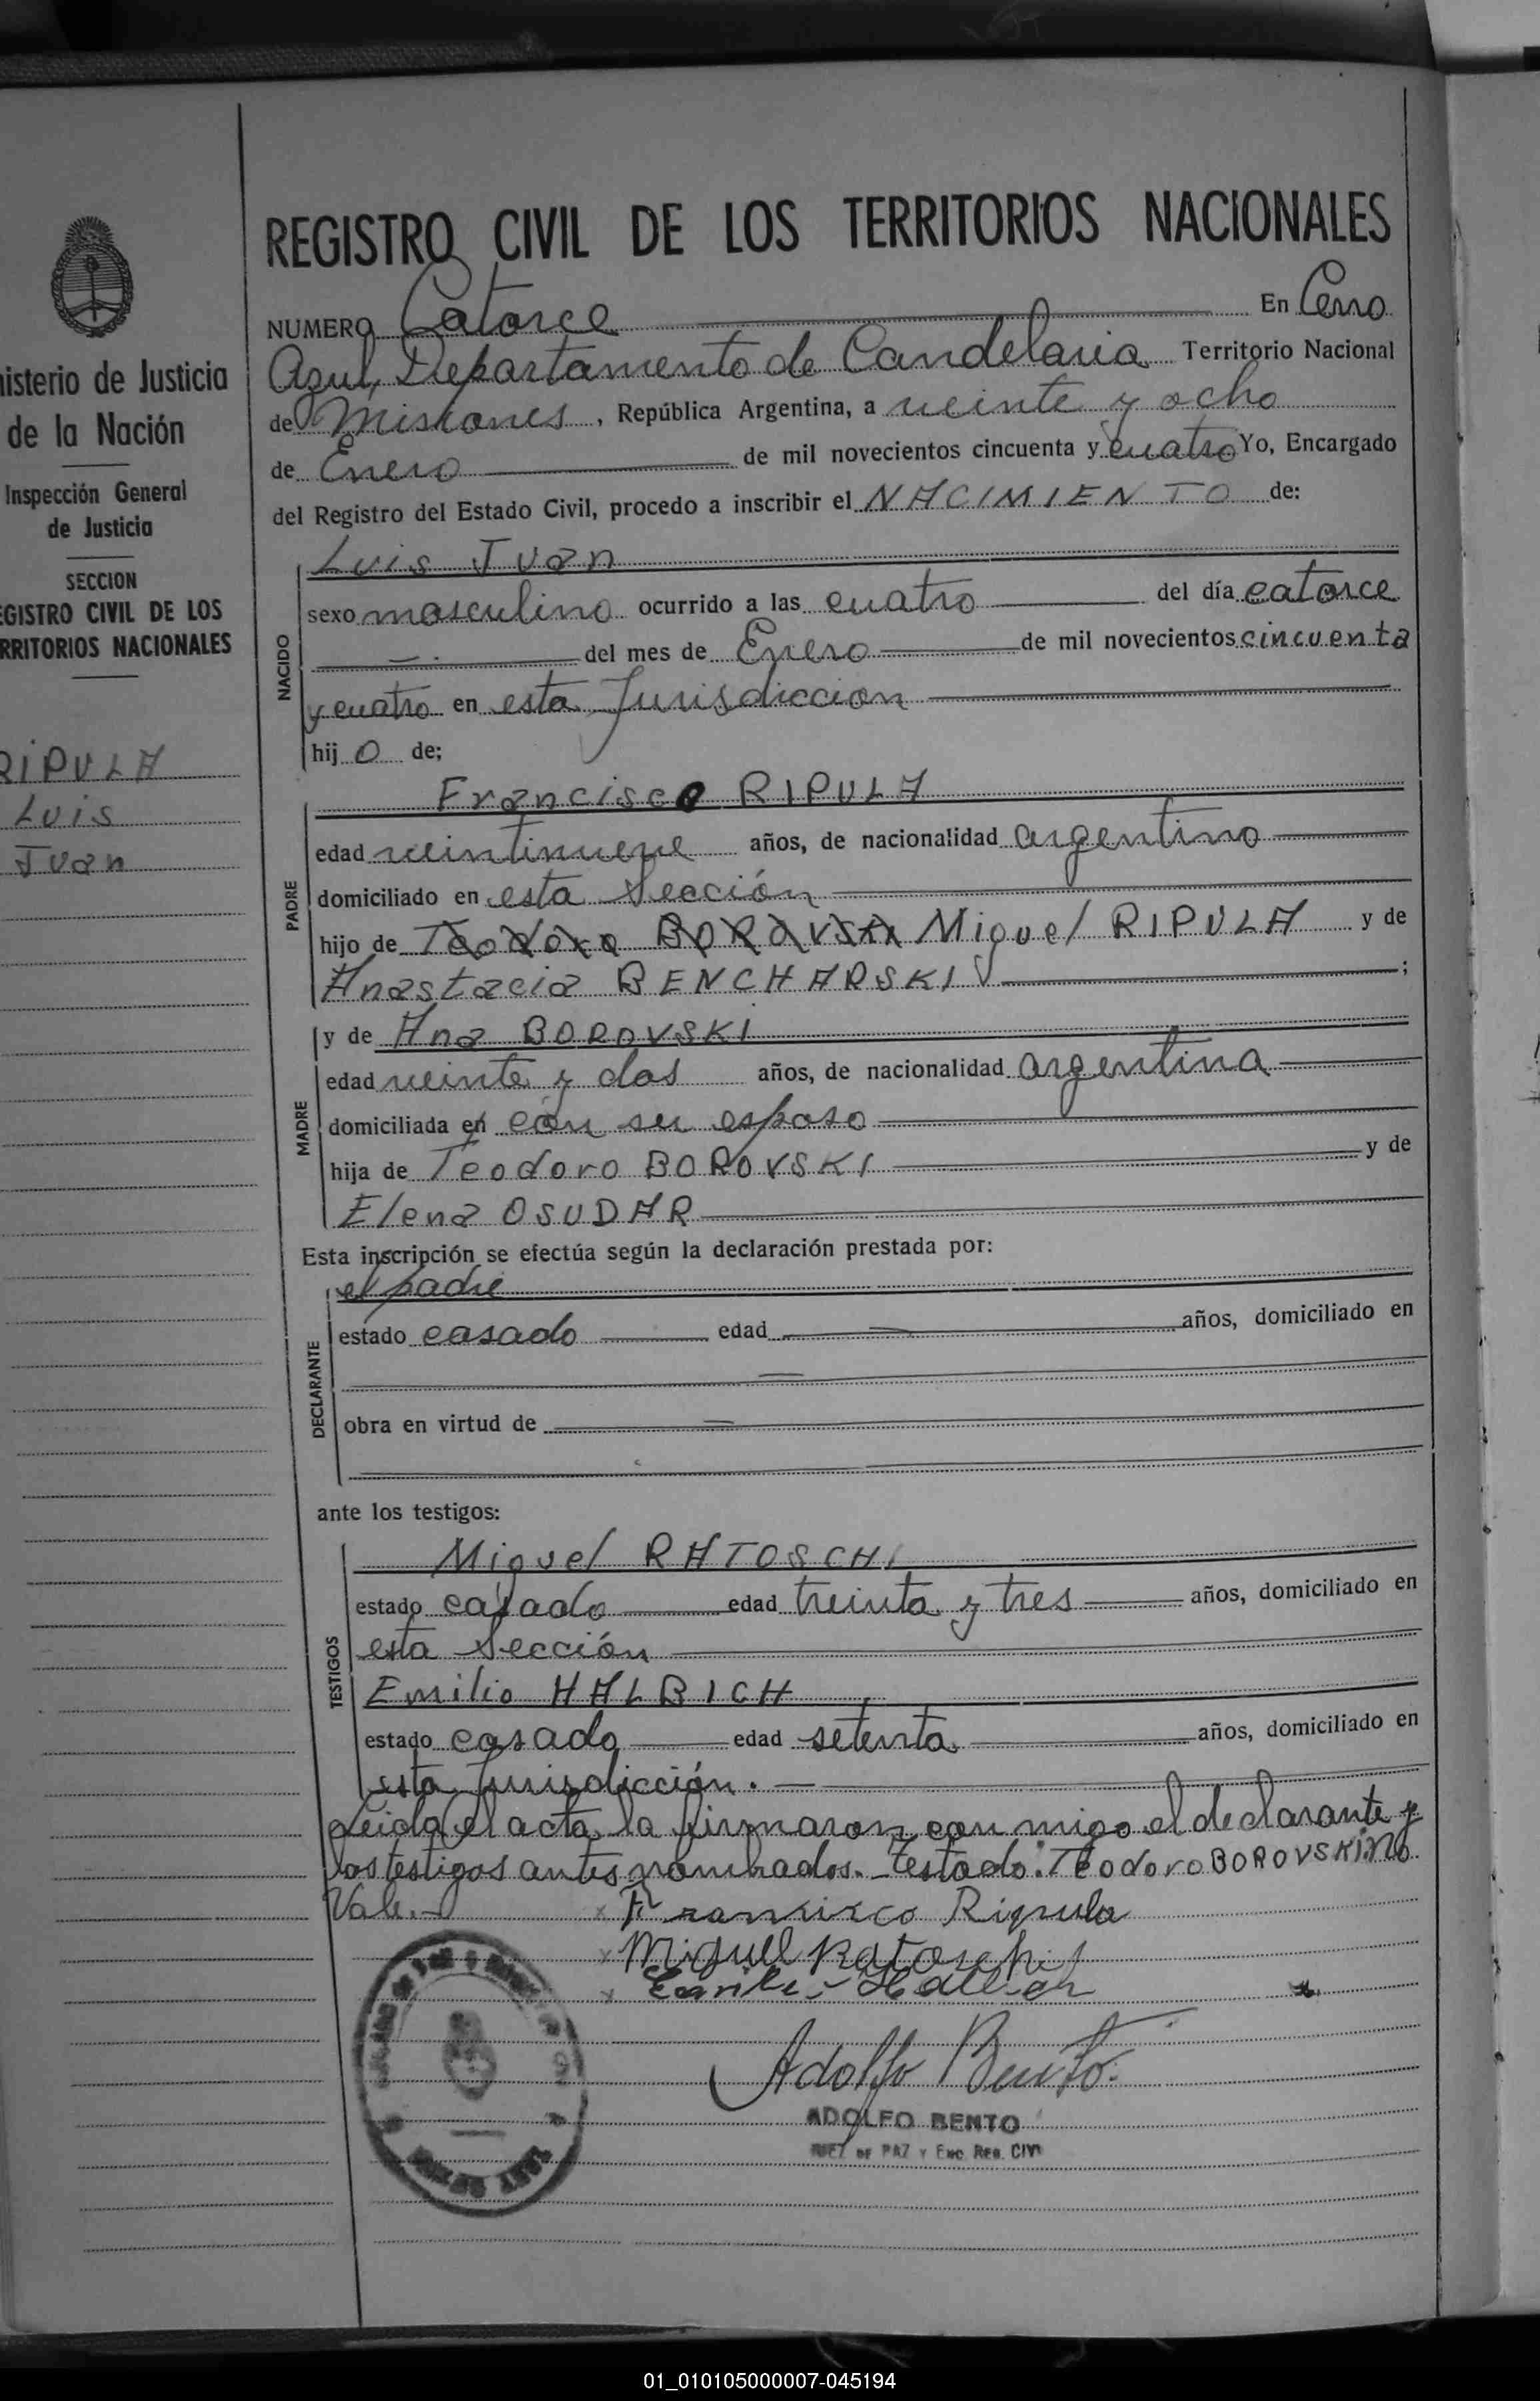 REGISTRO CIVIL DE LOS TERRITORIOS NACIONALES
NUMERO Catorce En Cerro
Azul, Departamento de Candelaria Territorio Nacional
de Misiones, República Argentina, a veinte y ocho
de Enero de mil novecientos cincuenta y cuatro Yo, Encargado
del Registro del Estado Civil, procedo a inscribir el NACIMIENTO de:
NACIDO
Luis Juan
sexo masculino ocurrido a las cuatro del día catorce
del mes de Enero de mil novecientos cincuenta
y cuatro en esta Jurisdiccion
hijo de;
PADRE
Francisco RIPULA
edad veintinueve años, de nacionalidad argentino
domiciliado en esta Sección
hijo de Teodoro BOROVSKI Miguel RIPULA y de
Anastacia BENCHARSKI;
MADRE
y de Ana BOROVSKI
edad veinte y dos años, de nacionalidad argentina
domiciliada en con su esposo
hija de Teodoro BOROVSKI y de
Elena OSUDAR
Esta inscripción se efectúa según la declaración prestada por:
DECLARANTE
el padre
estado casado edad años, domiciliado en
obra en virtud de
ante los testigos:
TESTIGOS
Miguel RATOSCHI
estado casado edad treinta y tres años, domiciliado en
esta Sección
Emilio HALBICH
estado casado edad setenta años, domiciliado en
esta Jurisdicción.
Leida el acta la firmaron con migo el declarante y
los testigos antes nombrados.- Testado: Teodoro BOROVSKI: No
Vale.-
Francisco Ripula
Miguel Ratoschi
Adolfo Bento
ADOLFO BENTO
JUEZ DE PAZ Y ENC. REG. CIVI
nisterio de Justicia
de la Nación
Inspección General
de Justicia
SECCION
EGISTRO CIVIL DE LOS
RRITORIOS NACIONALES
RIPULA
Luis
Juan
01_010105000007-045194